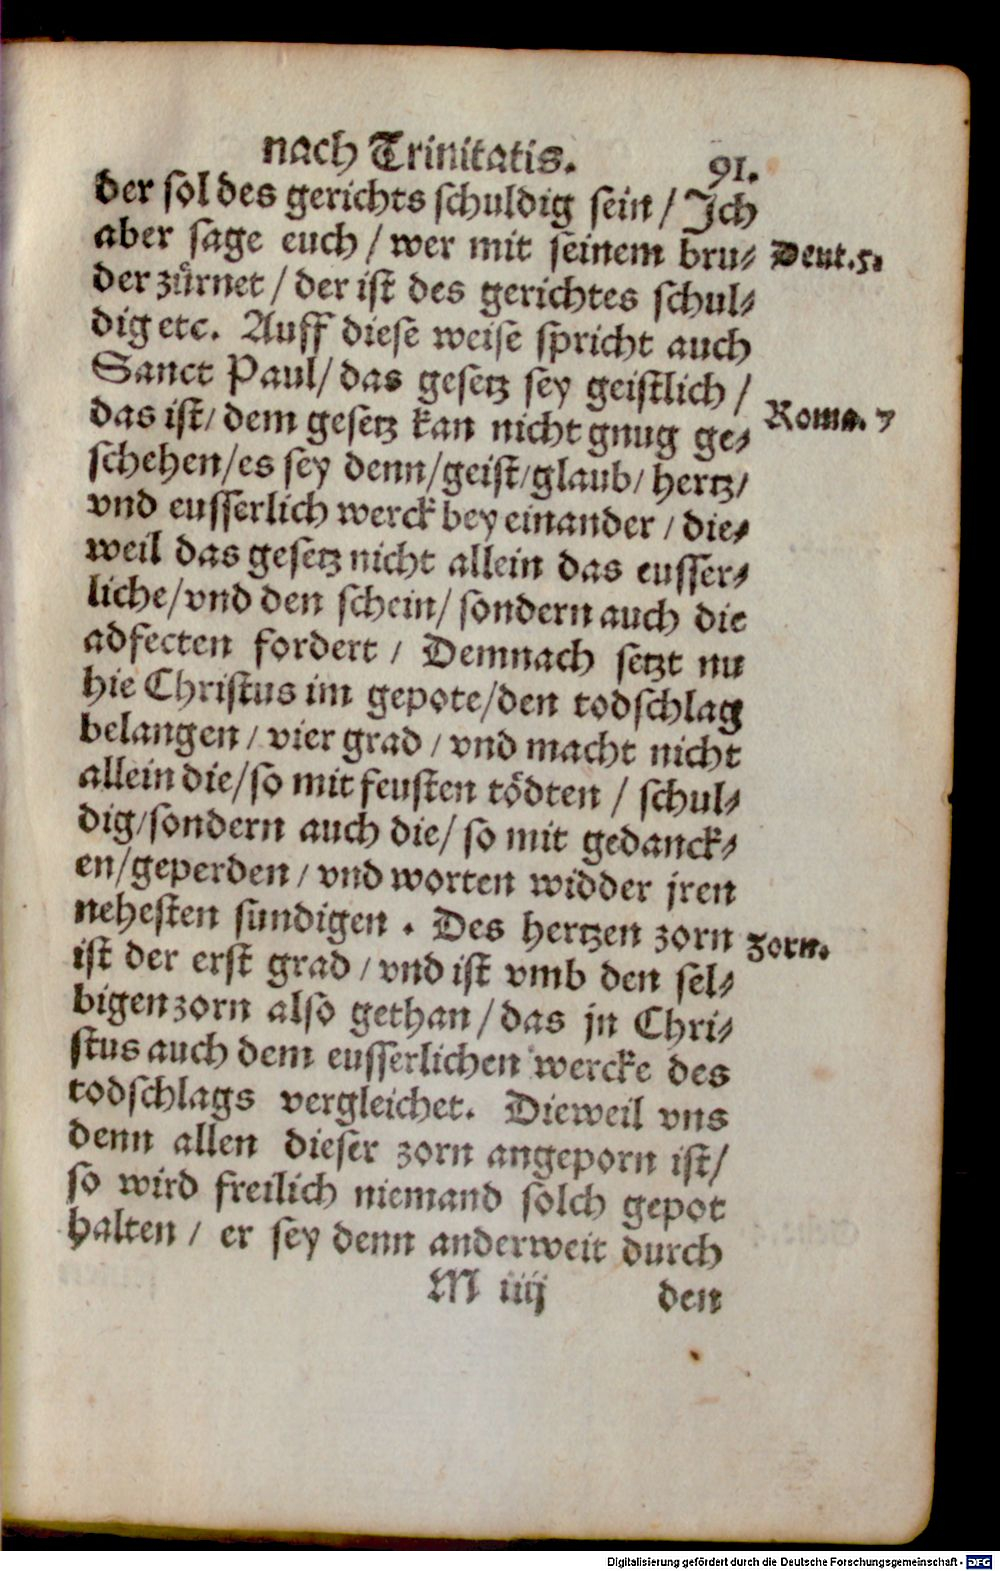 nach Trinitatis. 91.
der sol des gerichts schuldig sein / Ich
aber sage euch / wer mit seinem bru⸗ Deut.5.
der zürnet / der ist des gerichtes schul⸗
dig etc. Auff diese weise spricht auch
Sanct Paul / das gesetz sey geistlich /
das ist / dem gesetz kan nicht gnug ge⸗ Roma. 7
schehen / es sey denn / geist / glaub / hertz /
vnd eusserlich werck bey einander / die⸗
weil das gesetz nicht allein das eusser⸗
liche / vnd den schein / sondern auch die
adfecten fordert / Demnach setzt nu
hie Christus im gepote / den todschlag
belangen / vier grad / vnd macht nicht
allein die / so mit feusten tödten / schul⸗
dig / sondern auch die / so mit gedanck⸗
en / geperden / vnd worten widder jren
nehesten sundigen . Des hertzen zorn Zorn.
ist der erst grad / vnd ist vmb den sel⸗
bigen zorn also gethan / das jn Chri⸗
stus auch dem eusserlichen wercke des
todschlags vergleichet. Dieweil vns
denn allen dieser zorn angeporn ist /
so wird freilich niemand solch gepot
halten / er sey denn anderweit durch
M iiij den
Digitalisierung gefördert durch die Deutsche Forschungsgemeinschaft - DFG